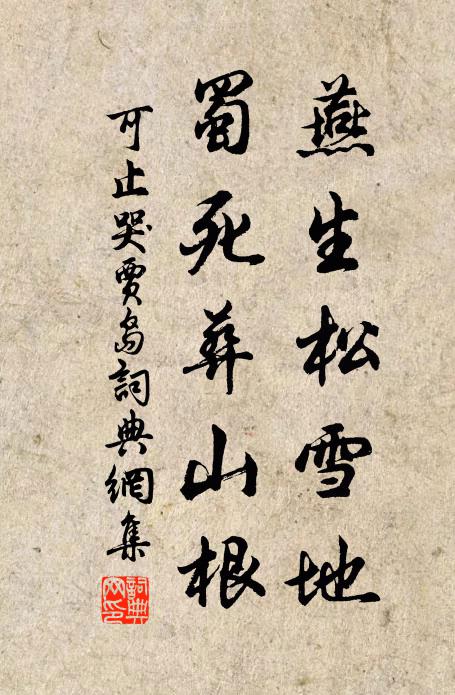 燕生松雪地
蜀死葬山根
可止哭賈島詞典網集
詞典網印